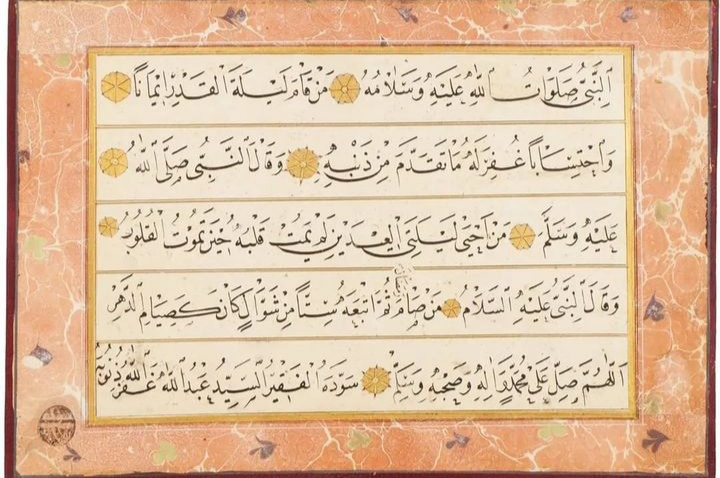 النَّبِيُّ صَلَوَاتُ اللّٰهِ عَلَيْهِ وَسَلَامُهُ مَنْ قَامَ لَيْلَةَ الْقَدْرِ اِيْمَانًا
وَاحْتِسَابًا غُفِرَ لَهُ مَا تَقَدَّمَ مِنْ ذَنْبِهِ وَقَالَ النَّبِيُّ صَلَّى اللّٰهُ
عَلَيْهِ وَسَلَّمَ مَنْ اَحْيٰى لَيْلَتَيِ الْعِيدَيْنِ لَمْ يَمُتْ قَلْبُهُ حِينَ تَمُوتُ الْقُلُوبُ
وَقَالَ النَّبِيُّ عَلَيْهِ السَّلَامُ مَنْ صَامَ رمضان ثُمَّ اَتْبَعَهُ سِتًّا مِنْ شَوَّالٍ كَانَ كَصِيَامِ الدَّهْرِ
اَللّٰهُمَّ صَلِّ عَلٰى مُحَمَّدٍ وَاٰلِهِ وَصَحْبِهِ وَسَلِّمْ سَوَّدَهُ الْفَقِيرُ السَّيِّدُ عَبْدُ اللّٰهِ غَفَرَ اللّٰهُ ذُنُوبَهُ